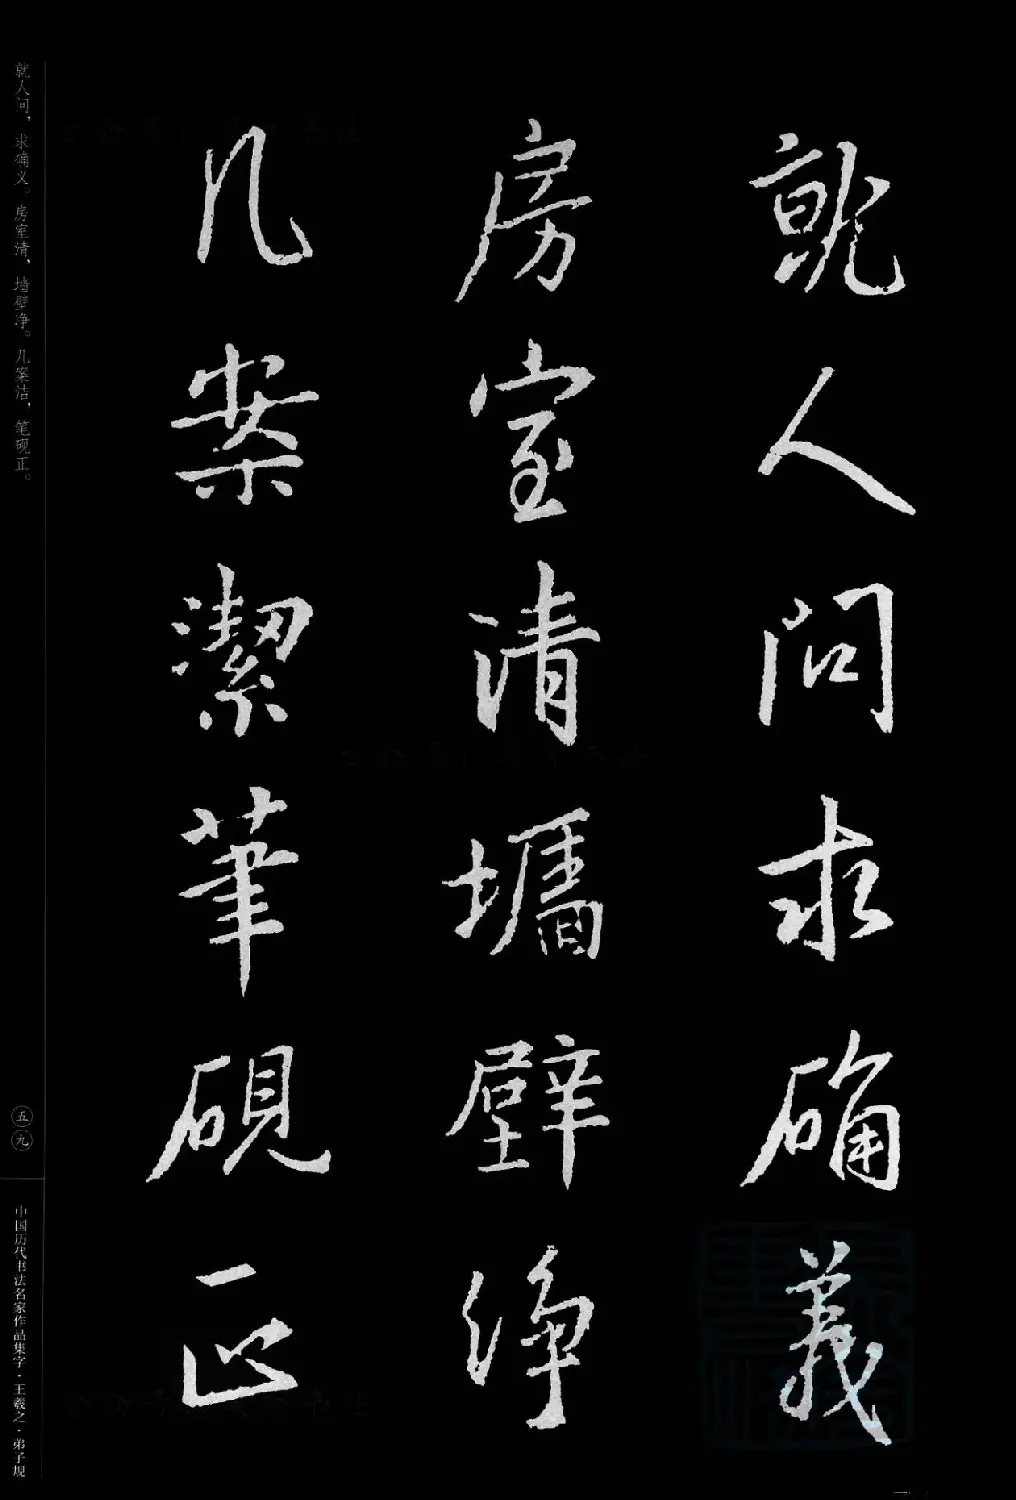 就人问求确義
房室清墻壁净
几案潔筆硯正
就人问，求确义。房室清，墙壁净。几案洁，笔砚正。
五九
中国历代书法名家作品集字·王羲之·弟子规